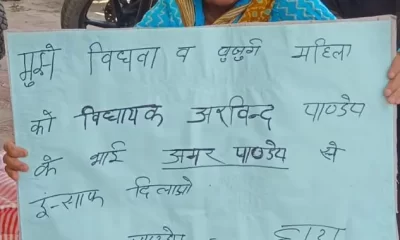 मुझे विधवा व बुजुर्ग महिला
को विधायक अरविन्द पाण्डेय
के भाई अमर पाण्डेय से
इंसाफ दिलाओ
पाण्डेय - द्वारा